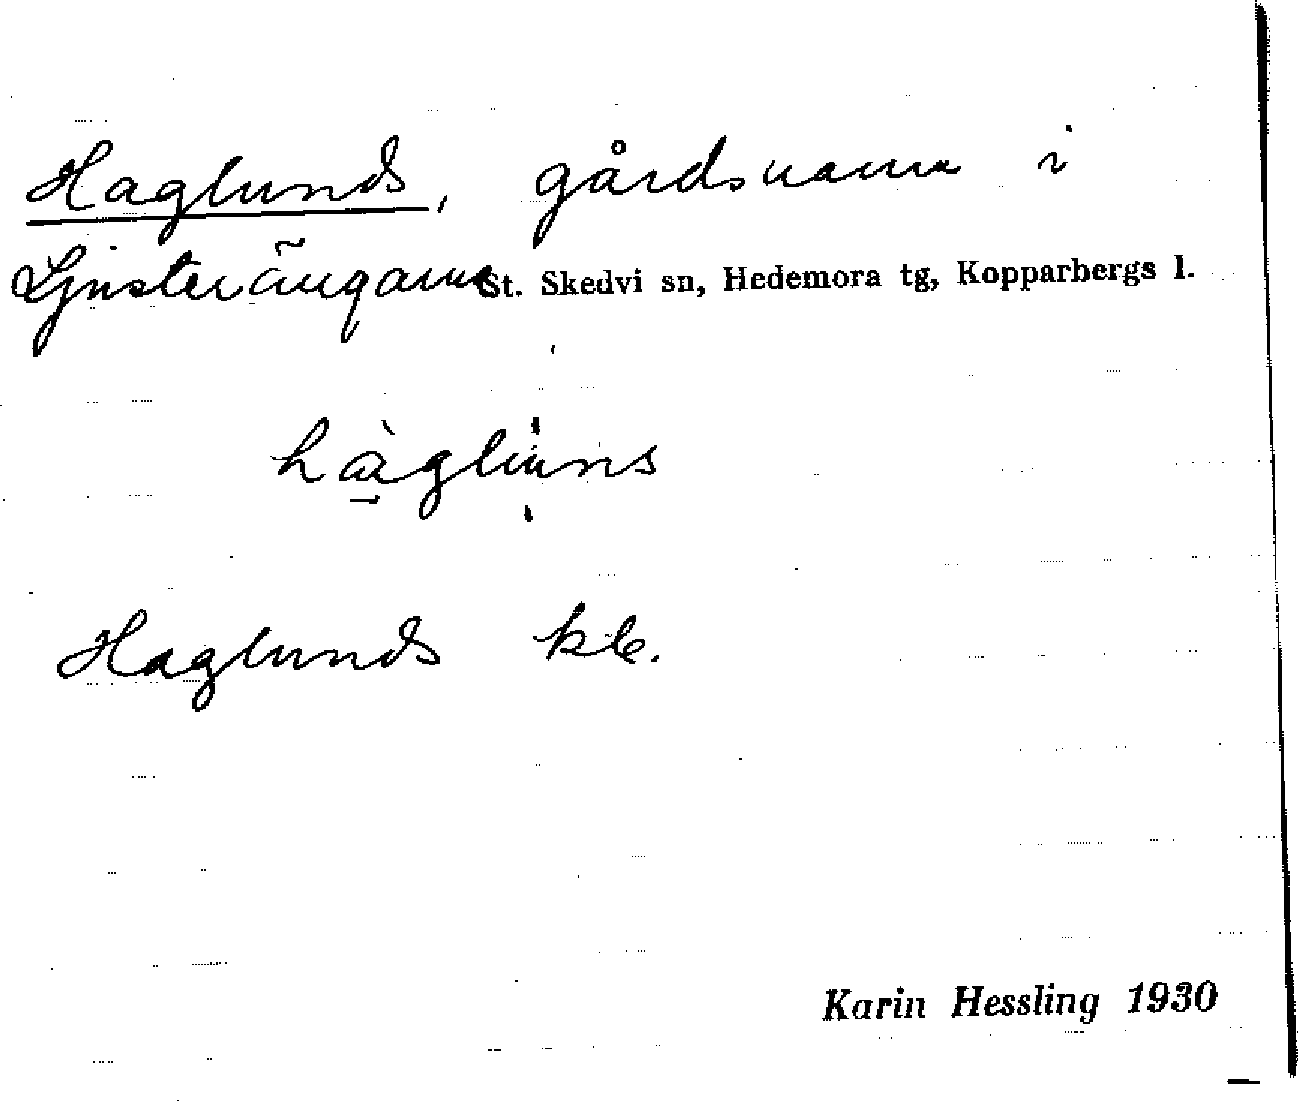 Haglunds, gårdsnamn i
Ljusterängarna St. Skedvi sn, Hedemora tg, Kopparbergs l.
hàglu̇ns
Haglunds kb.
Karin Hessling 1930